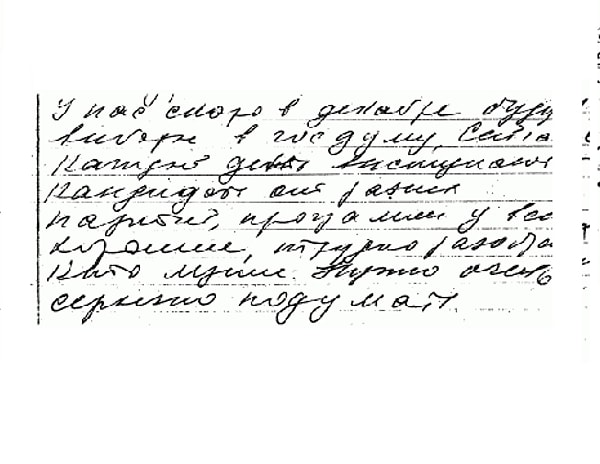 У нас скоро в декабре буду
выборы в госдуму. Сейча
Каждый день выступают
кандидаты от разных
партий, программы у все
хорошие, трудно разобра
кто лучше. Нужно очень
серьезно подумать.